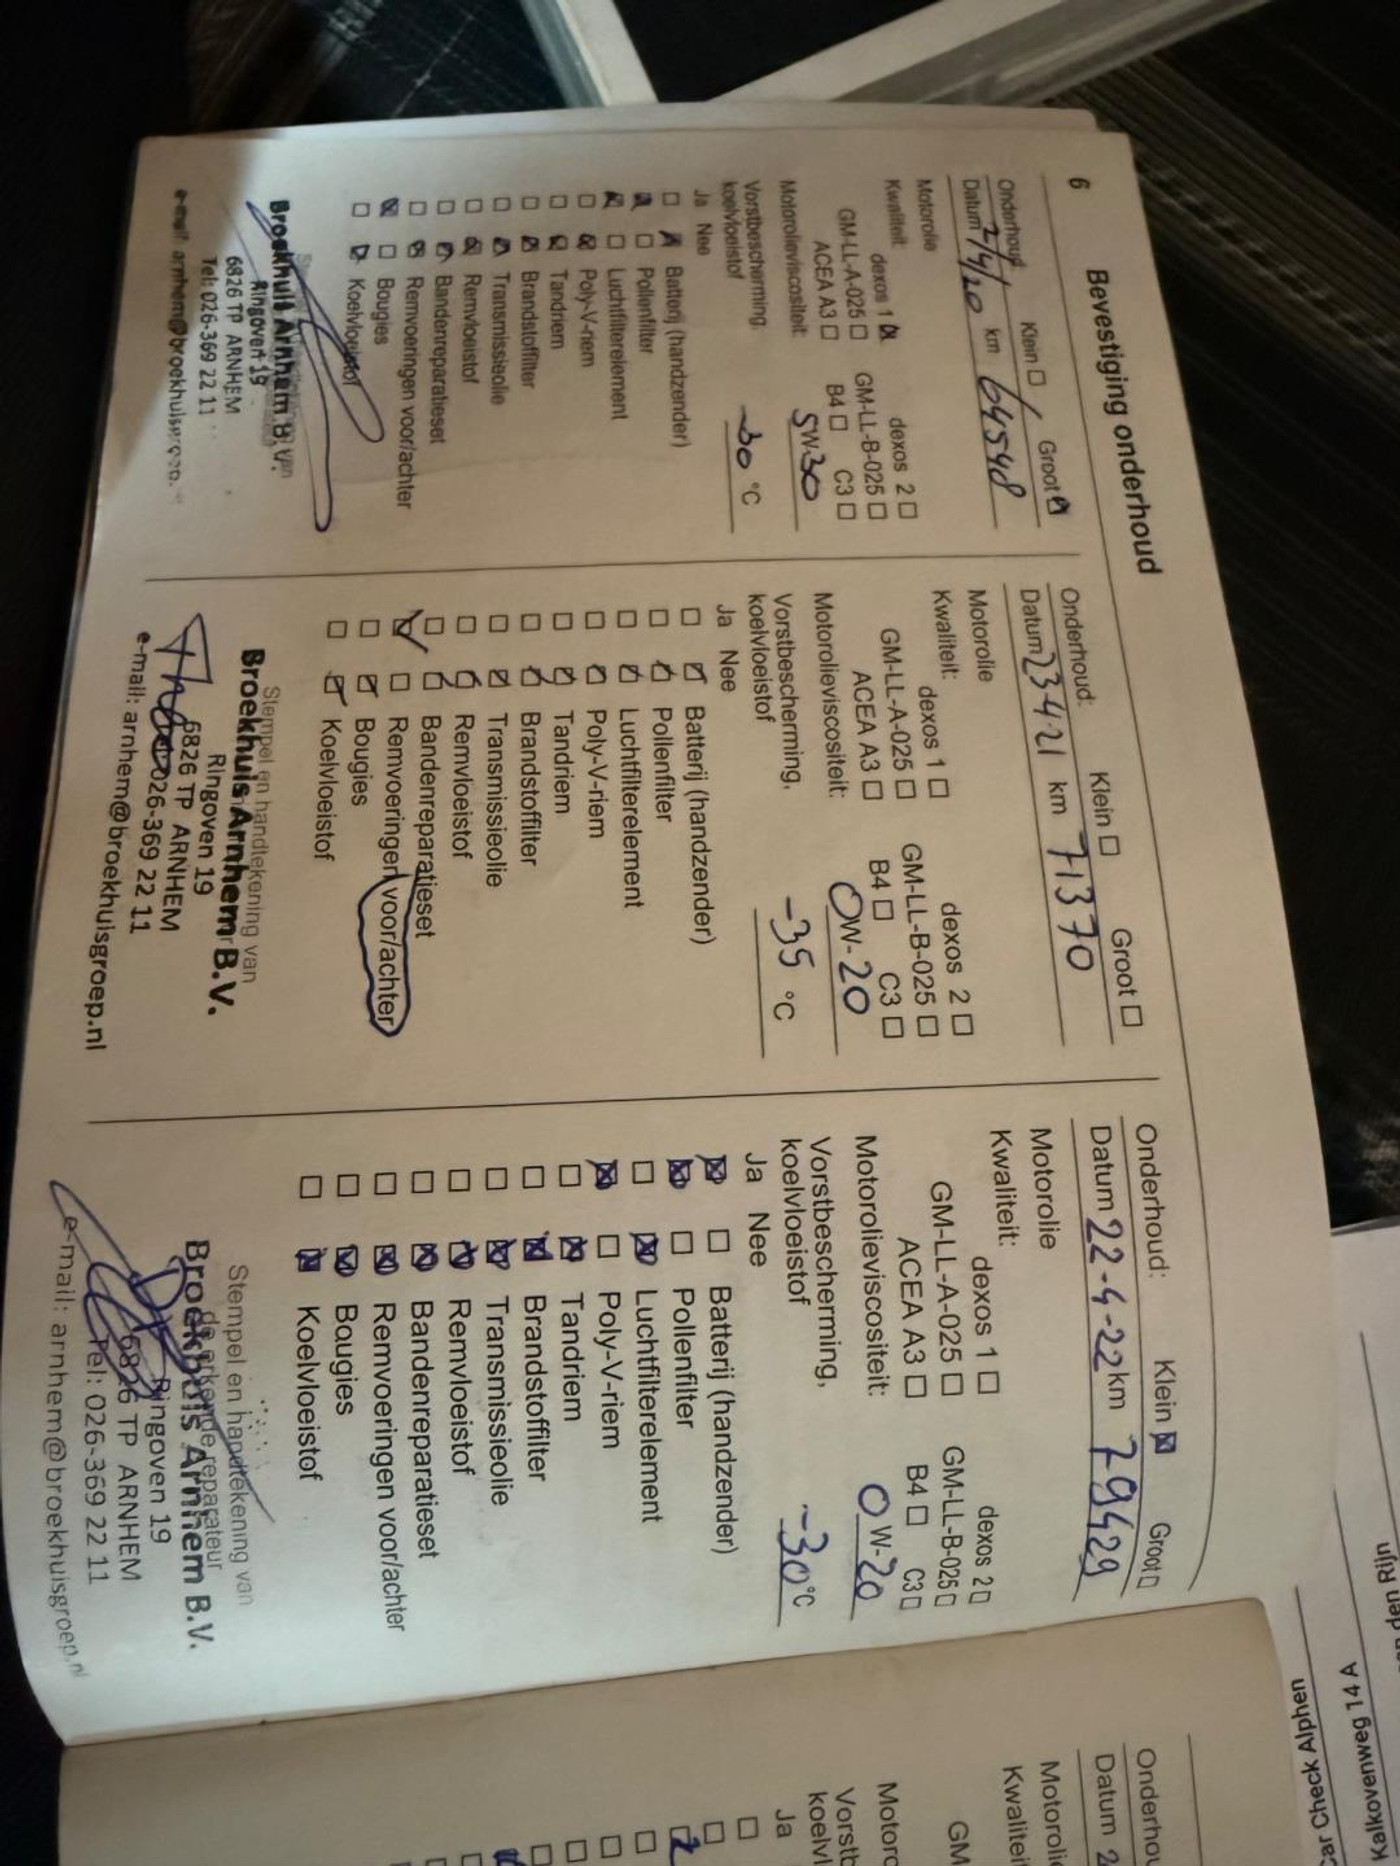 6
Bevestiging onderhoud
Onderhoud: Klein ☐ Groot ☒
Datum 2/4/20 km 64548
Motorolie
Kwaliteit: dexos 1 ☒ dexos 2 ☐
GM-LL-A-025 ☐ GM-LL-B-025 ☐
ACEA A3 ☐ B4 ☐ C3 ☐
Motorolieviscositeit: 5W30
Vorstbescherming,
koelvloeistof -30 °C
Ja Nee
☐ ☒ Batterij (handzender)
☒ ☐ Pollenfilter
☒ ☐ Luchtfilterelement
☐ ☒ Poly-V-riem
☐ ☒ Tandriem
☐ ☒ Brandstoffilter
☐ ☒ Transmissieolie
☐ ☒ Remvloeistof
☐ ☒ Bandenreparatieset
☐ ☒ Remvoeringen voor/achter
☒ ☐ Bougies
☐ ☒ Koelvloeistof
Broekhuis Arnhem B.V.
Ringoven 19
6826 TP ARNHEM
Tel: 026-369 22 11
Onderhoud: Klein ☐ Groot ☐
Datum 23-4-21 km 71370
Motorolie
Kwaliteit: dexos 1 ☐ dexos 2 ☐
GM-LL-A-025 ☐ GM-LL-B-025 ☐
ACEA A3 ☐ B4 ☐ C3 ☐
Motorolieviscositeit: 0W-20
Vorstbescherming,
koelvloeistof -35 °C
Ja Nee
☐ ☑ Batterij (handzender)
☐ ☑ Pollenfilter
☐ ☑ Luchtfilterelement
☐ ☑ Poly-V-riem
☐ ☑ Tandriem
☐ ☑ Brandstoffilter
☐ ☑ Transmissieolie
☐ ☑ Remvloeistof
☐ ☑ Bandenreparatieset
☑ ☐ Remvoeringen voor/achter
☐ ☑ Bougies
☐ ☑ Koelvloeistof
Stempel en handtekening van
Broekhuis Arnhem B.V.
Ringoven 19
6826 TP ARNHEM
026-369 22 11
e-mail: arnhem@broekhuisgroep.nl
Onderhoud: Klein ☒ Groot ☐
Datum 22-4-22 km 79429
Motorolie
Kwaliteit:
dexos 1 ☐ dexos 2 ☐
GM-LL-A-025 ☐ GM-LL-B-025 ☐
ACEA A3 ☐ B4 ☐ C3 ☐
Motorolieviscositeit: 0W-20
Vorstbescherming,
koelvloeistof -30 °C
Ja Nee
☒ ☐ Batterij (handzender)
☒ ☐ Pollenfilter
☐ ☒ Luchtfilterelement
☒ ☐ Poly-V-riem
☐ ☒ Tandriem
☐ ☒ Brandstoffilter
☐ ☒ Transmissieolie
☐ ☒ Remvloeistof
☐ ☒ Bandenreparatieset
☐ ☒ Remvoeringen voor/achter
☐ ☒ Bougies
☐ ☒ Koelvloeistof
Stempel en handtekening van
de erkende reparateur
Broekhuis Arnhem B.V.
Ringoven 19
6826 TP ARNHEM
Tel: 026-369 22 11
e-mail: arnhem@broekhuisgroep.nl
Onderhou
Datum 2
Motorolie
Kwaliteit
GM
Motoro
Vorstb
koelvl
Ja
den Rijn
Kalkovenweg 14 A
Car Check Alphen